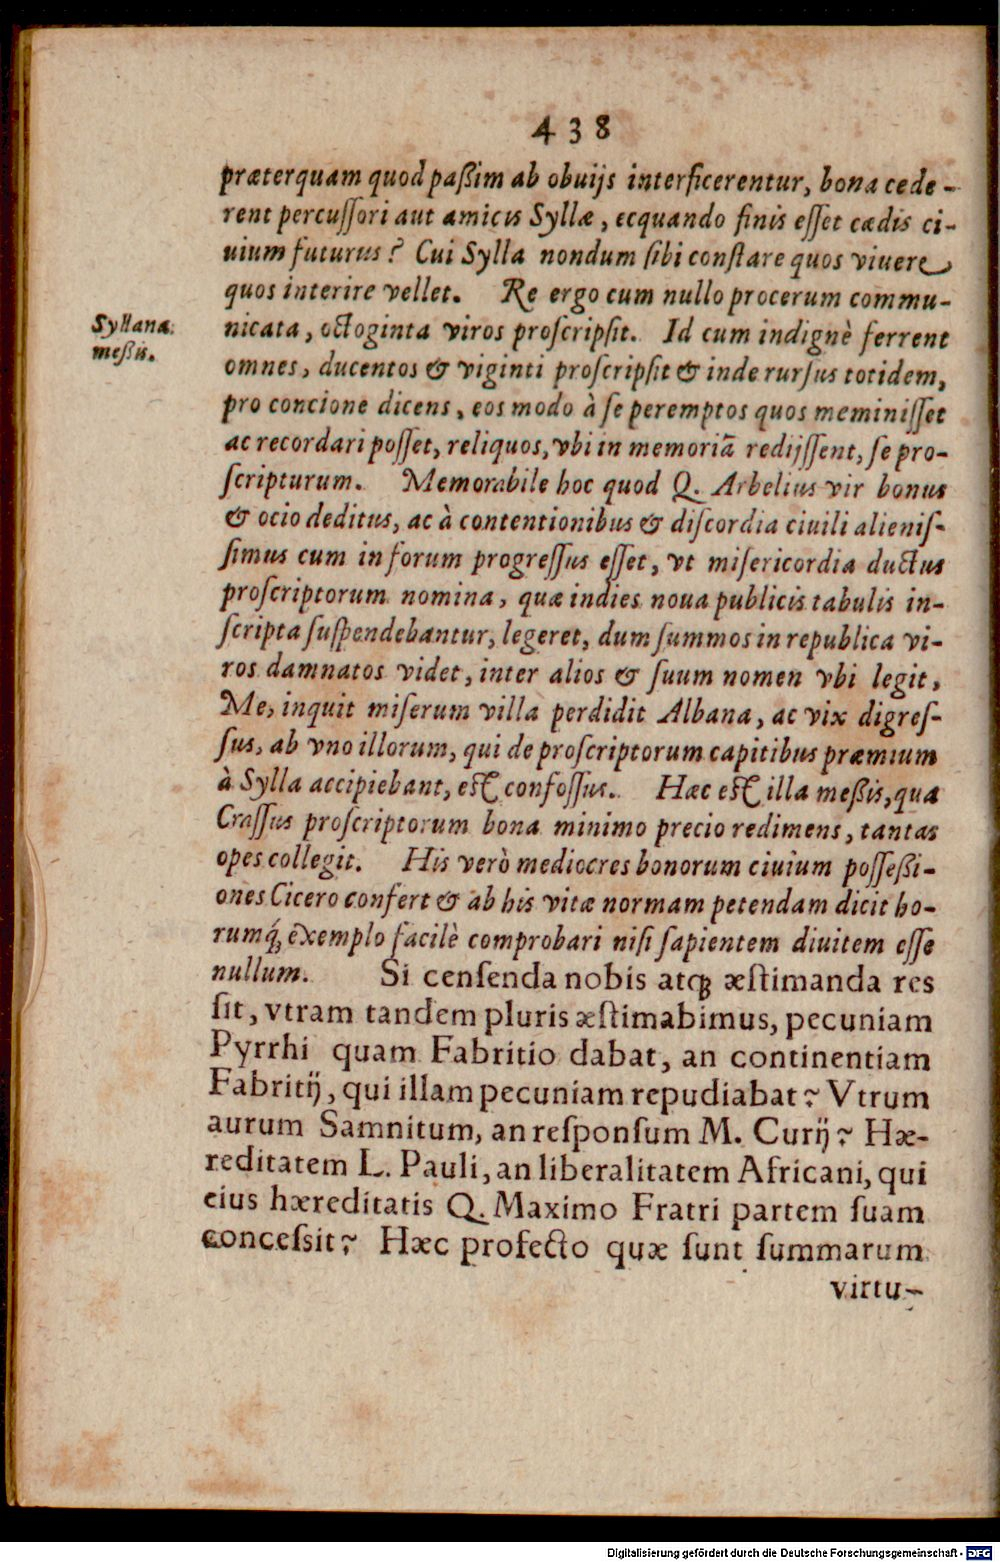 438
præterquam quod paßim ab obuijs interficerentur, bona cede-
rent percuſſori aut amicis Syllæ, ecquando finis eſſet cædis ci-
uium futurus? Cui Sylla nondum ſibi conſtare quos viuere
quos interire vellet. Re ergo cum nullo procerum commu-
Syllana
meßis.
nicata, octoginta viros proſcripſit. Id cum indignè ferrent
omnes, ducentos & viginti proſcripſit & inde rurſus totidem,
pro concione dicens, eos modo à ſe peremptos quos meminiſſet
ac recordari poſſet, reliquos, vbi in memoriā redijſſent, ſe pro-
ſcripturum. Memorabile hoc quod Q. Arbelius vir bonus
& ocio deditus, ac à contentionibus & diſcordia ciuili alieniſ-
ſimus cum in forum progreſſus eſſet, vt miſericordia ductus
proſcriptorum nomina, quæ indies noua publicis tabulis in-
ſcripta ſuſpendebantur, legeret, dum ſummos in republica vi-
ros damnatos videt, inter alios & ſuum nomen vbi legit,
Me, inquit miſerum villa perdidit Albana, ac vix digreſ-
ſus, ab vno illorum, qui de proſcriptorum capitibus præmium
à Sylla accipiebant, eſt confoſſus. Hæc eſt illa meßis, qua
Craſſus proſcriptorum bona minimo precio redimens, tantas
opes collegit. His verò mediocres bonorum ciuium poſſeßi-
ones Cicero confert & ab his vitæ normam petendam dicit ho-
rumq́; exemplo facilè comprobari niſi ſapientem diuitem eſſe
nullum. Si cenſenda nobis atq; æſtimanda res
ſit, vtram tandem pluris æſtimabimus, pecuniam
Pyrrhi quam Fabritio dabat, an continentiam
Fabritij, qui illam pecuniam repudiabat? Vtrum
aurum Samnitum, an reſponſum M. Curij? Hæ-
reditatem L. Pauli, an liberalitatem Africani, qui
eius hæreditatis Q. Maximo Fratri partem ſuam
conceſsit? Hæc profecto quæ ſunt ſummarum
virtu-
Digitalisierung gefördert durch die Deutsche Forschungsgemeinschaft - DFG